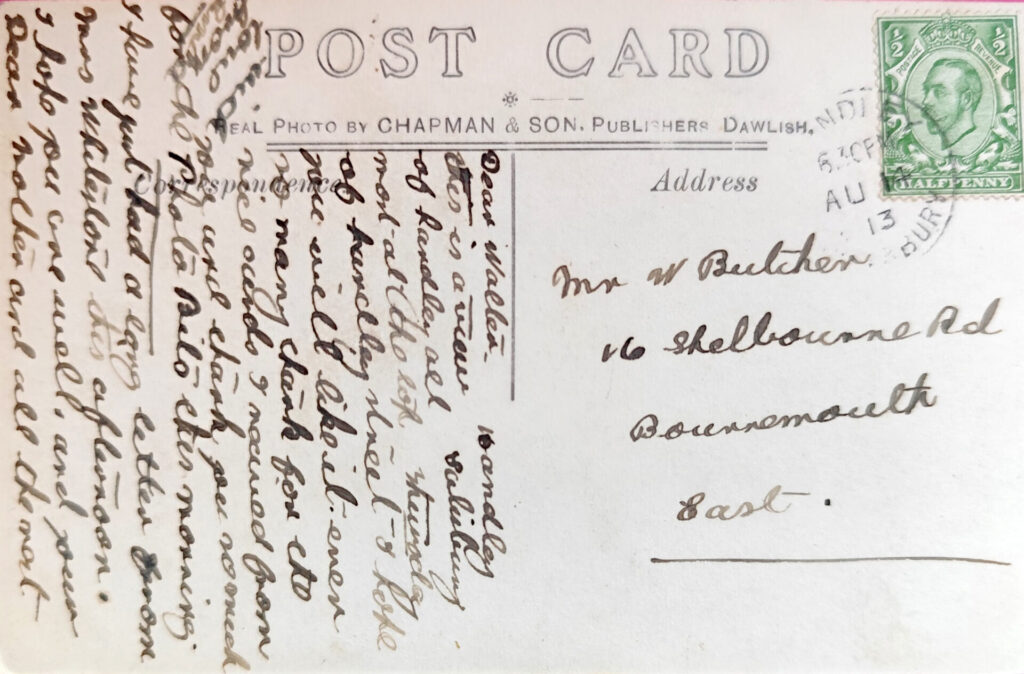 POST CARD
REAL PHOTO BY CHAPMAN & SON. PUBLISHERS DAWLISH.
Correspondence
Address
½ ½
POSTAGE REVENUE
HALFPENNY
6.30PM
AU
13
BURY
Mr W Butcher
16 Shelbourne Rd
Bournemouth
East.
Dear Walter. Handley
this is a view Salisbury.
of handley all Thursday
most all the lot I hope
of street
you will like it. ever
so many thank for
nice cards I received from
you and thank you so much
for the Photo Bits this morning
I have just had a long letter from
Mrs this afternoon.
I hope you are well, and your
Dear mother and all the rest